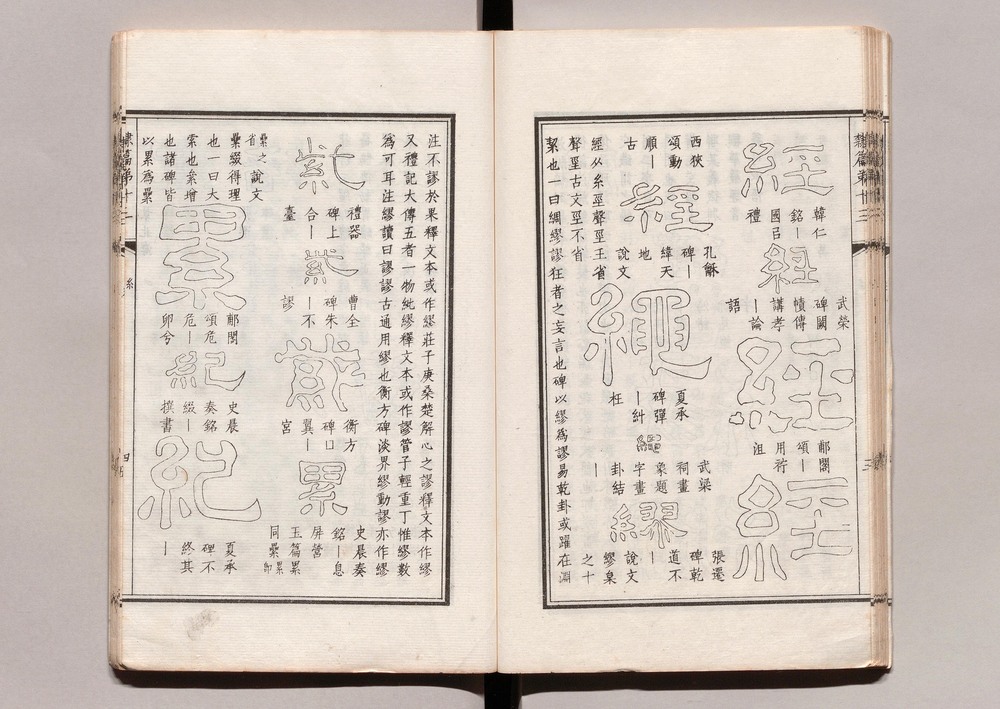 隸篇第十三
經
韓仁
銘｜
國㠯
禮
經
武榮
碑闕
幘傳
講孝
｜論
語
經
郙閣
頌｜
用衎
沮
經
西狹
頌動
順｜
古
經
孔龢
碑｜
緯天
地
說文
經从糸巠聲巠王省
聲巠古文巠不省
繩
夏承
碑彈
｜糾
枉
繩
武梁
祠畫
象題
字畫
卦結
｜
繆
張遷
碑乾
道不
｜
說文
繆枲
之十
絜也一曰綢繆謬狂者之妄言也碑以繆爲謬易乾卦或躍在淵
注不謬於果釋文本或作繆莊子庚桑楚解心之謬釋文本作繆
又禮記大傳五者一物紕繆釋文本或作謬管子輕重丁惟繆數
爲可耳注繆讀曰謬謬古通用繆也衡方碑淡界繆動謬亦作繆
紫
禮器
碑上
合｜
臺
紫
曹全
碑朱
｜不
謬
紫
衡方
碑口
翼｜
宮
累
史晨奏
銘｜息
屏營
玉篇累
同纍累即
纍之
省說文
纍綴得理
也一曰大
索也糸增
也諸碑皆
以累爲纍
累
郙閣
頌危
危｜
卵兮
紀
史晨
奏銘
綴｜
撰書
紀
夏承
碑不
終其
｜
隸篇第十三
糸